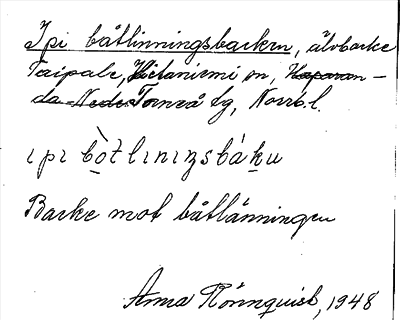 I pi båtlinningsbacken, älvbacke
Taipale, Hietaniemi sn, Haparan-
da Neder Torneå tg, Norrb. l.
ı pı bòtlınıŋsbáku
Backe mot båtlänningen
Anna Rönnquist, 1948